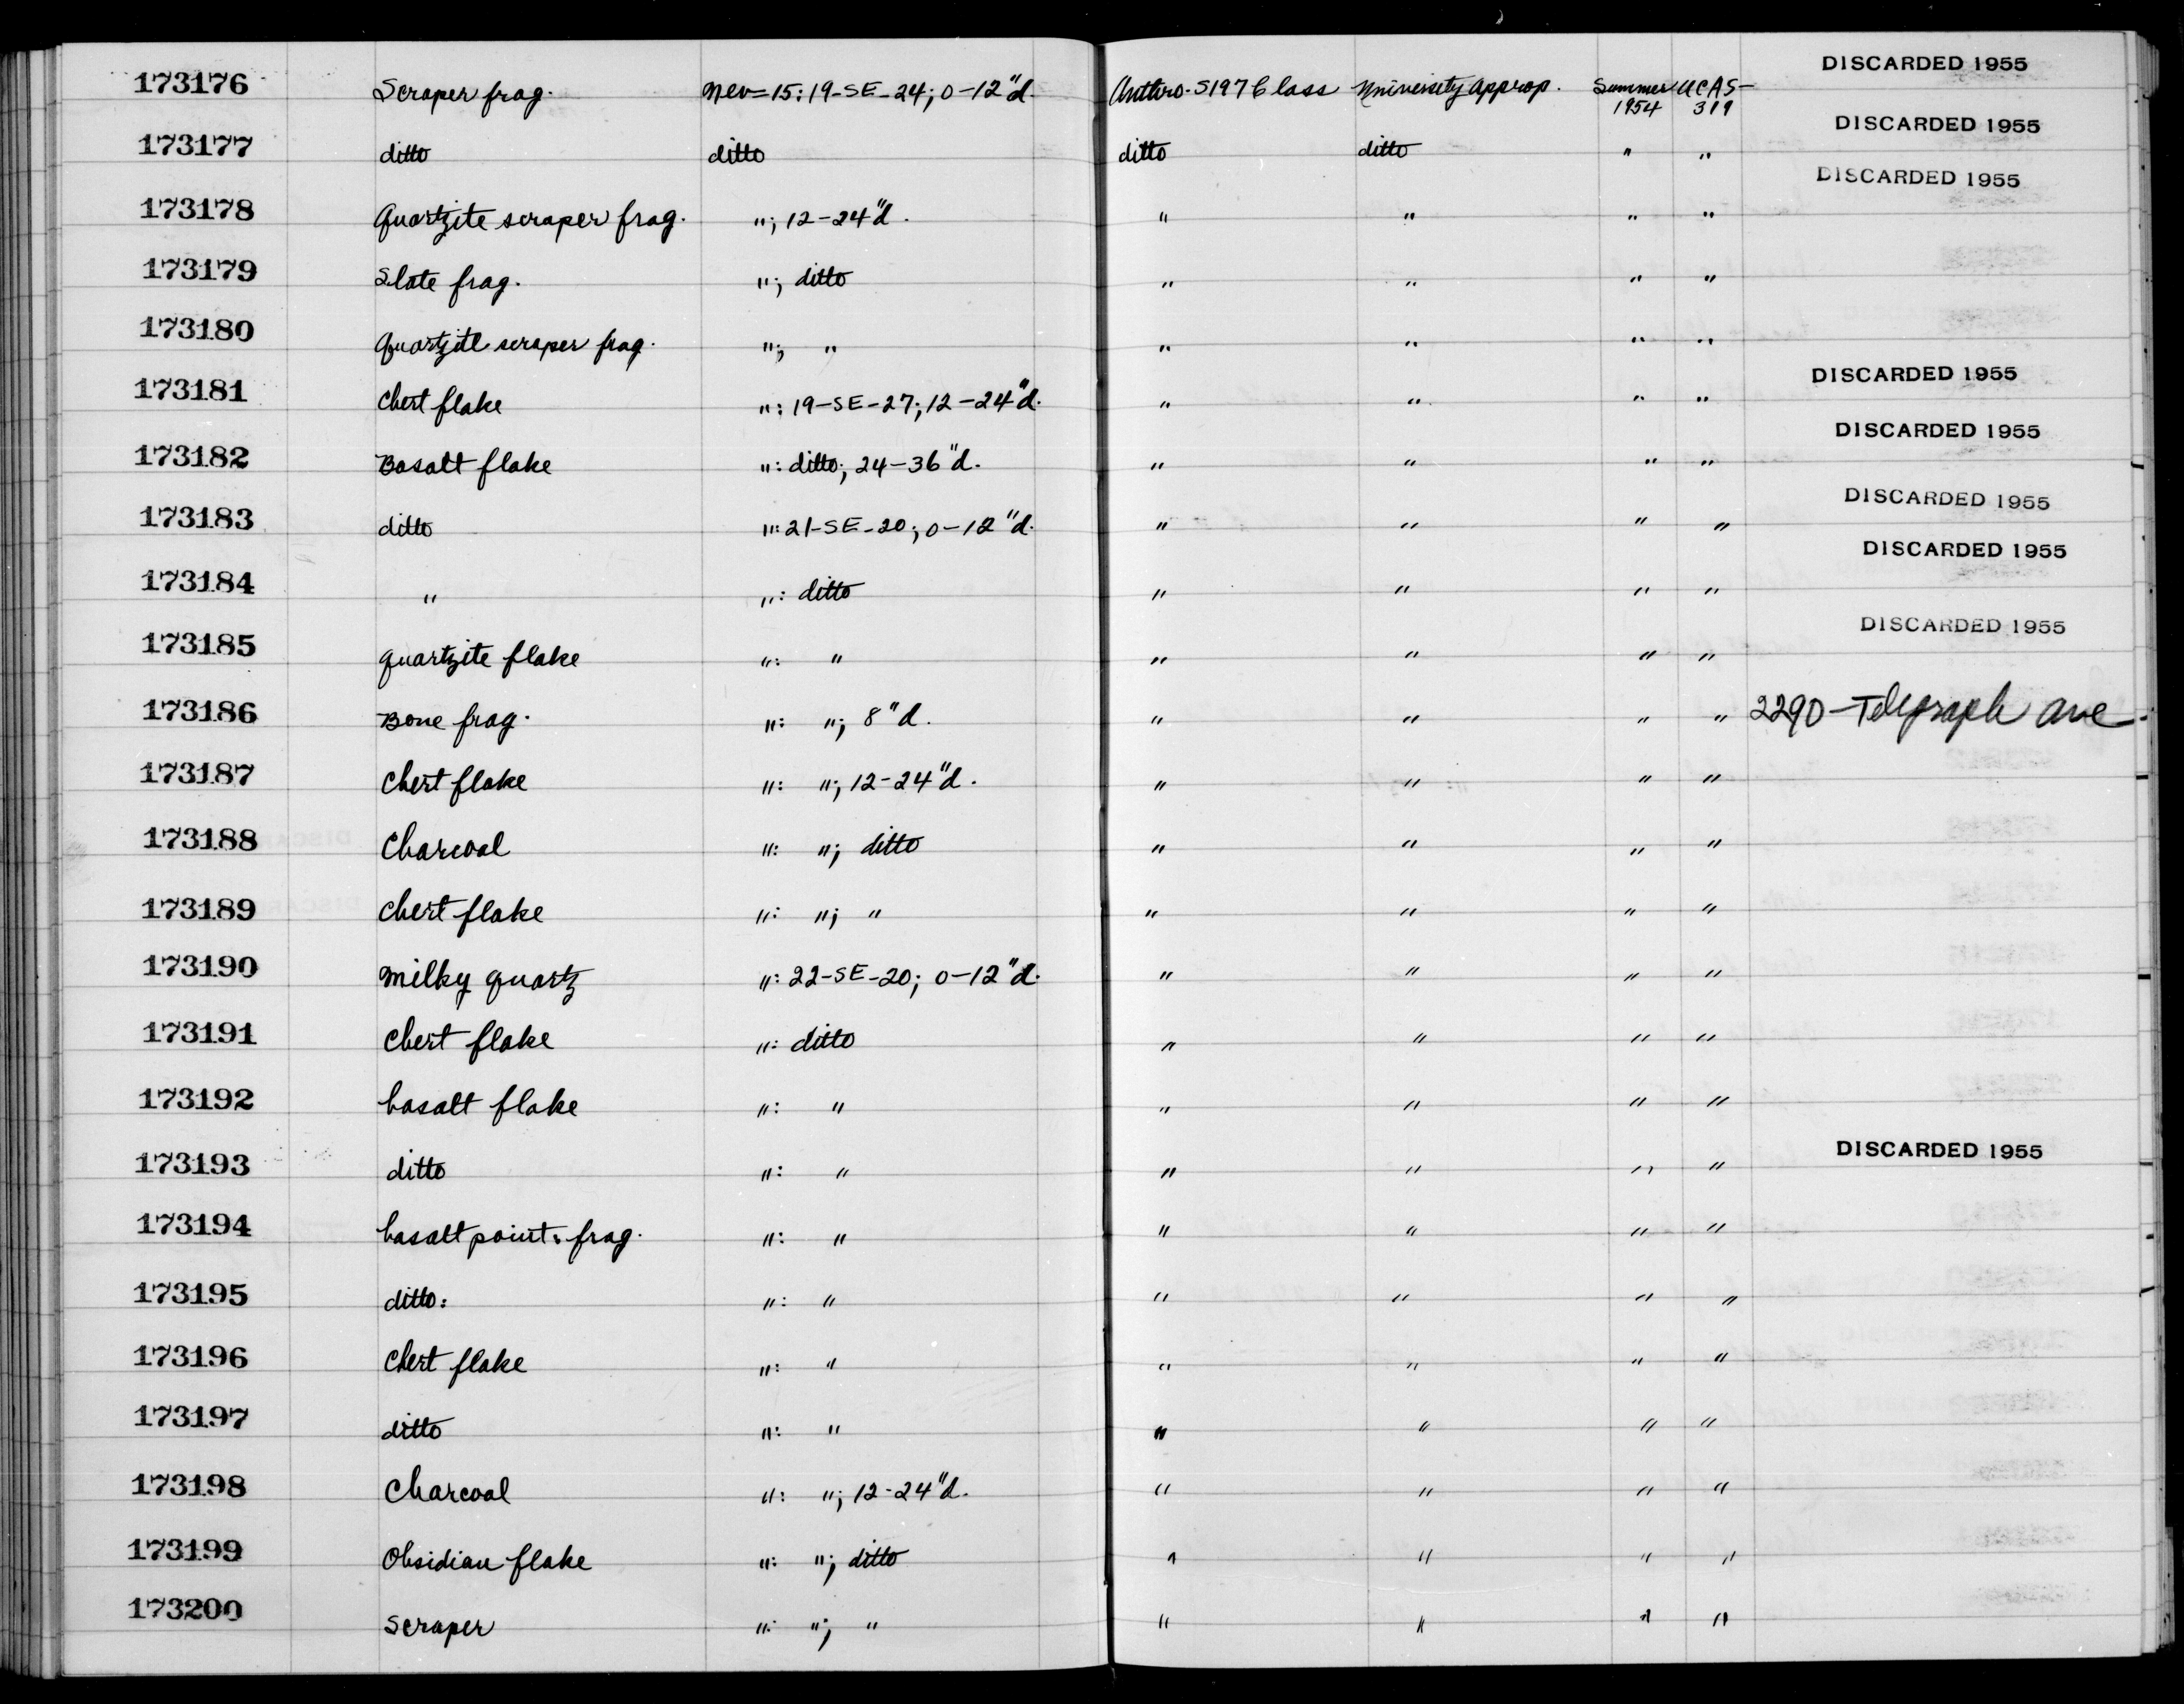 173176 Scraper frag. Nev-15: 19-SE-24; 0-12"d. Anthro. S197 Class University Approp. Summer 1954 UCAS-319 DISCARDED 1955
173177 ditto ditto ditto ditto " " DISCARDED 1955
173178 Quartzite scraper frag. "; 12-24"d. " " " " DISCARDED 1955
173179 Slate frag. "; ditto " " " "
173180 Quartzite scraper frag. "; " " " " "
173181 Chert flake ": 19-SE-27; 12-24"d. " " " " DISCARDED 1955
173182 Basalt flake ": ditto; 24-36"d. " " " " DISCARDED 1955
173183 ditto ": 21-SE-20; 0-12"d. " " " " DISCARDED 1955
173184 " ": ditto " " " " DISCARDED 1955
173185 quartzite flake ": " " " " " DISCARDED 1955
173186 Bone frag. ": "; 8"d. " " " " 2290-Telegraph ave
173187 Chert flake ": "; 12-24"d. " " " "
173188 Charcoal ": "; ditto " " " "
173189 Chert flake ": "; " " " " "
173190 Milky quartz ": 22-SE-20; 0-12"d. " " " "
173191 Chert flake ": ditto " " " "
173192 basalt flake ": " " " " "
173193 ditto ": " " " " " DISCARDED 1955
173194 basalt point: frag. ": " " " " "
173195 ditto: ": " " " " "
173196 Chert flake ": " " " " "
173197 ditto ": " " " " "
173198 Charcoal ": "; 12-24"d. " " " "
173199 Obsidian flake ": "; ditto " " " "
173200 Scraper ": "; " " " " "